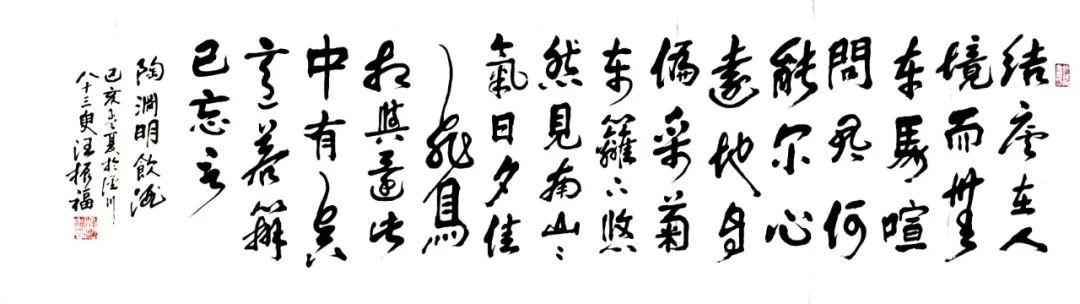 结庐在人
境而無
车馬喧
問君何
能尔心
遠地自
偏采菊
东籬下悠
然見南山〻
氣日夕佳
飛鳥
相與還此
中有真
意辨
已忘言
陶淵明飲酒
己亥孟夏於涇川
八十三叟汪振福